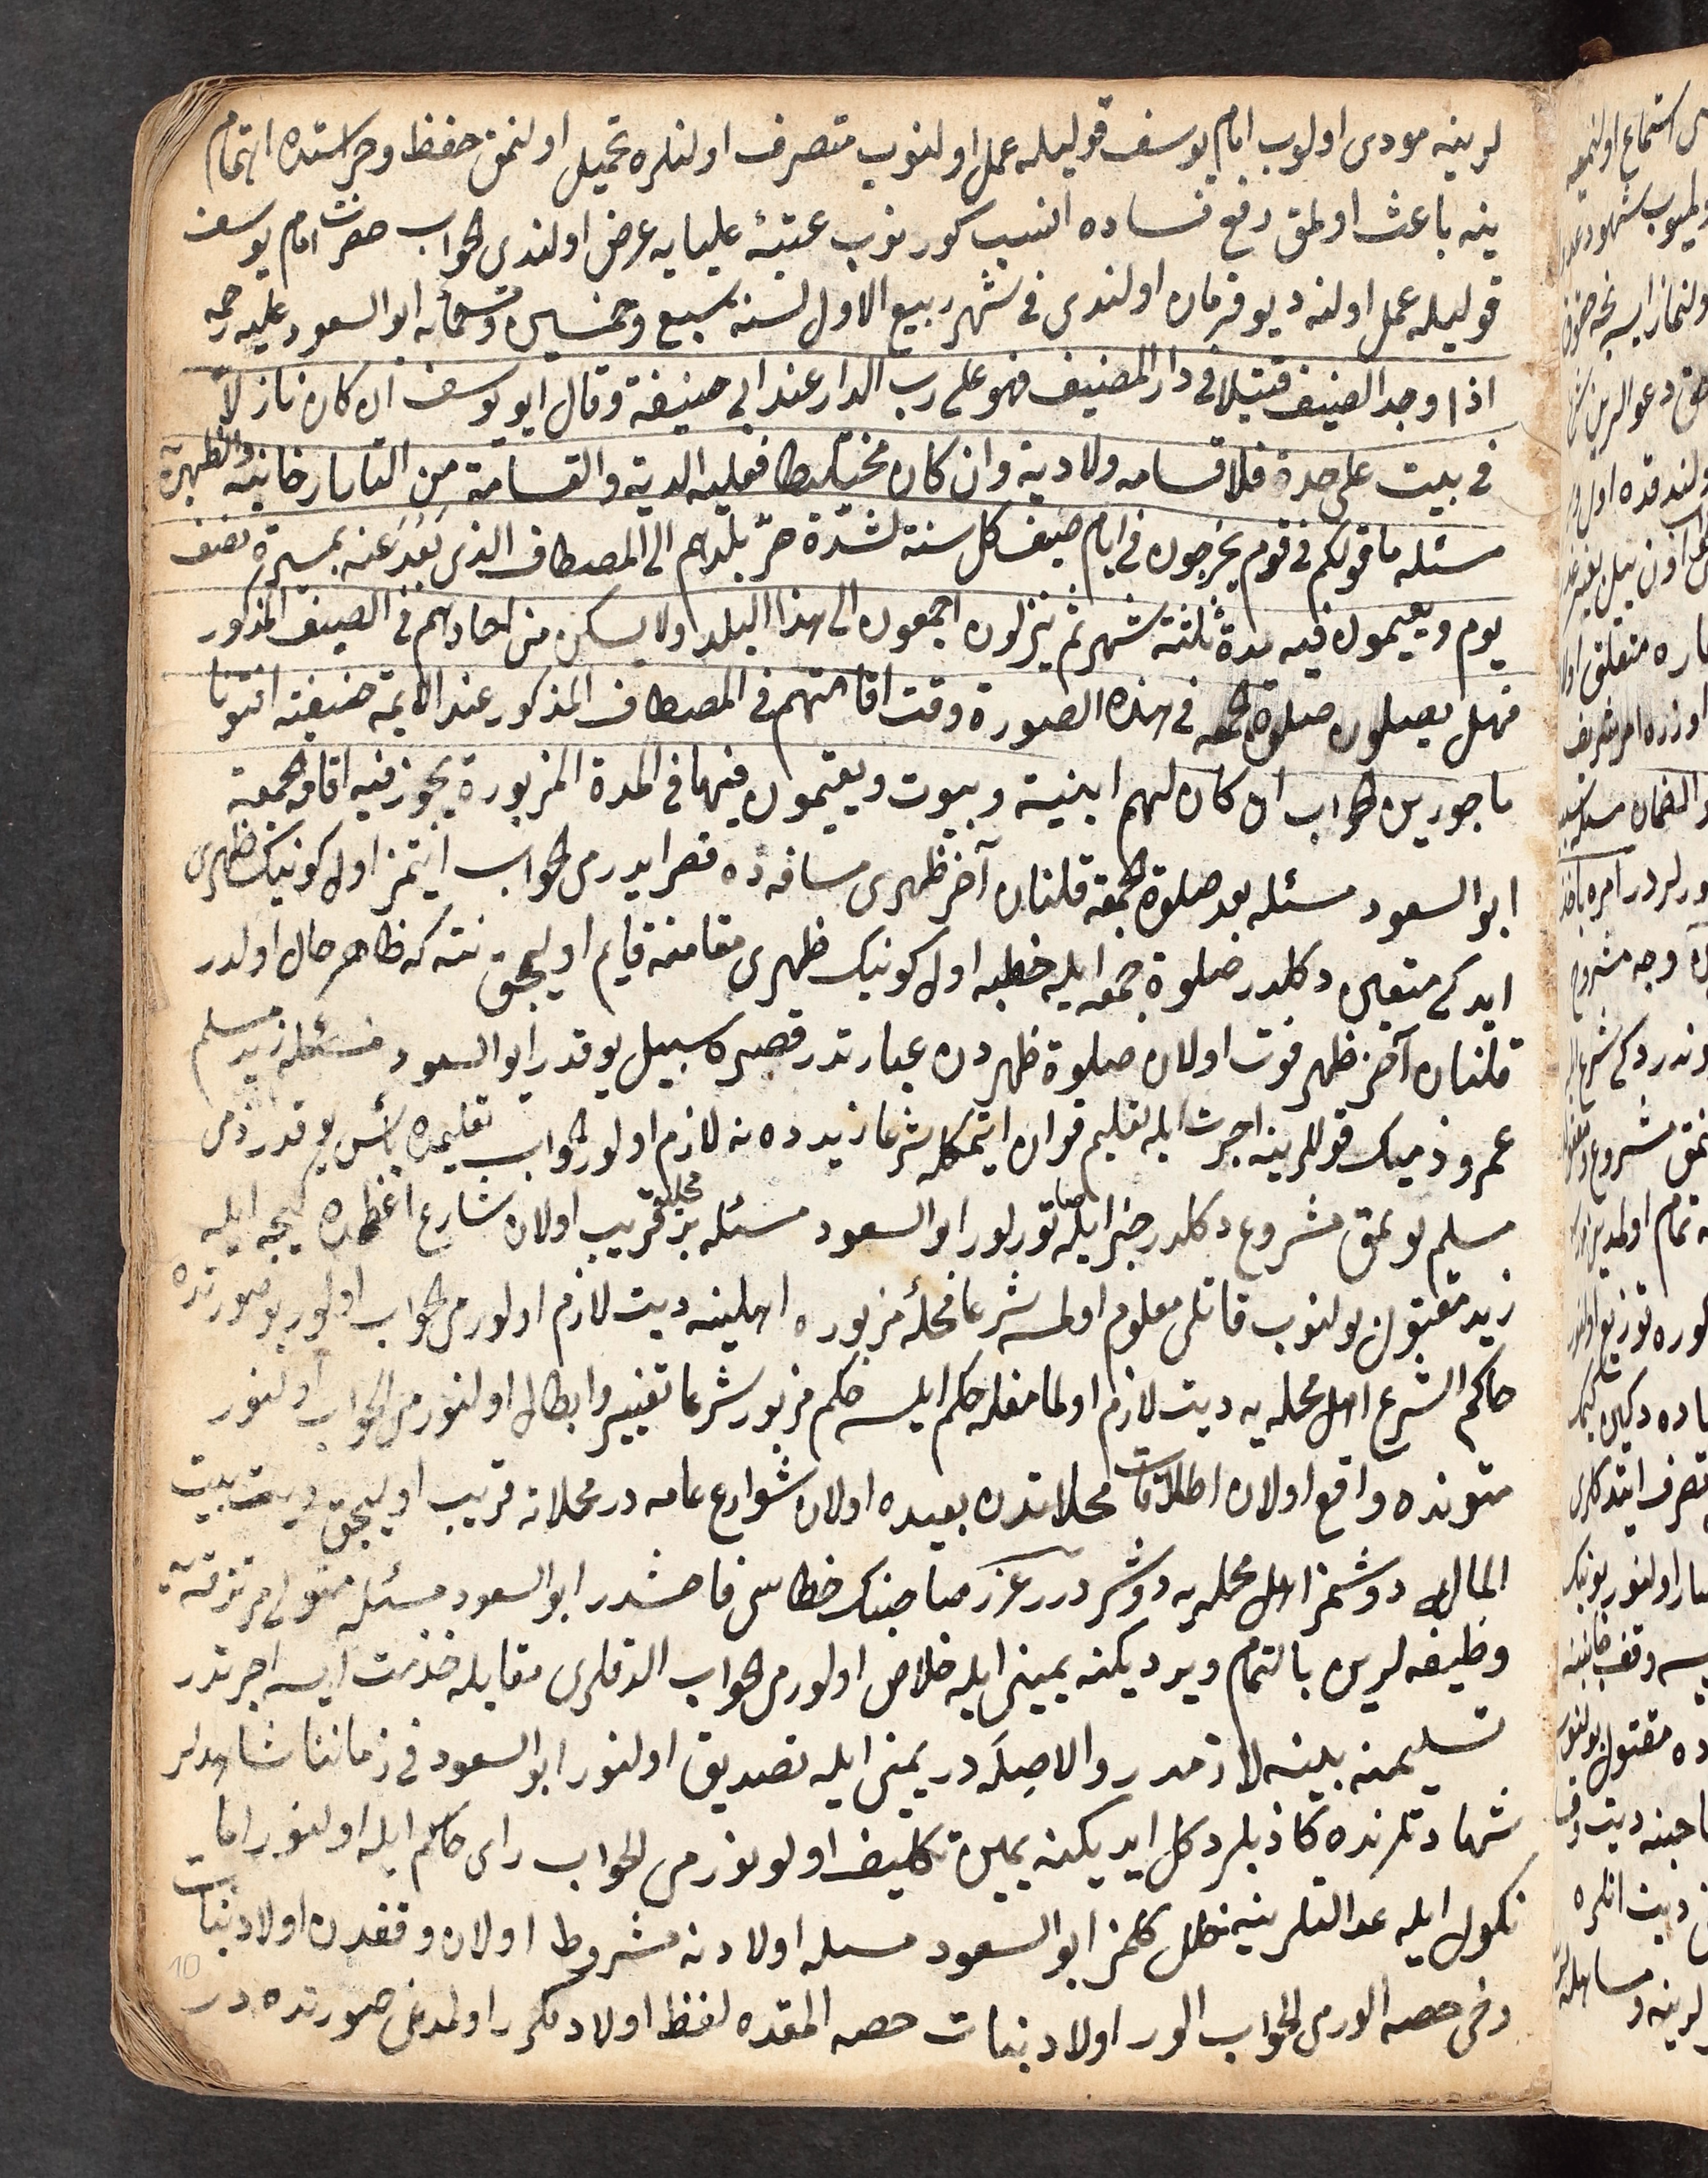 لرینه مودی اولوب امام یوسف قولیله عمل اولنوب متصرف اولنلره تحمیل اولنمق حفظ وحراستده اهتمام
ینه باعث اولمق رفع فساده انسب کورنوب عتبهٔ علیایه عرض اولندی الجواب حضرت امام یوسف
قولیله عمل اولنه دیو فرمان اولندی فی شهر ربیع الاول لسنه سبع وخمسین وتسعمائه ابو السعود علیه رحمه
اذا وجد الضیف قتیلا فی دار المضیف فهو علی رب الدار عند ابی حنیفة وقال ابو یوسف ان کان نازلا
فی بیت علی حدة فلا قسامه ولا دیة وان کان مختلطا فعلیه الدیة والقسامة من التاتارخانیه والظهیریة
مسئله ما قولکم فی قوم یخرجون فی ایام صیف کل سنة لشدة حرّ بلدهم الی المصطاف الذی بَعُدَ عنه بمسیرة نصف
یوم ویقیمون فیه مدة ثلثة شهر ثم ینزلون اجمعون الی هذا البلد ولا یسکن من احادهم فی الصیف المذکور
فهل یصلون صلوة الجمعه فی هذه الصورة وقت اقامتهم فی المصطاف المذکور عند الایمه حنیفته افتونا
ماجورین الجواب ان کان لهم ابنیة وبیوت ویقیمون فیها فی المدة المزبورة یجوز فیه اقامه الجمعة
ابو السعود مسئله بعد صلوة الجمعة قلنان آخر ظهری مسافه ده قصر ایدرمی الجواب ایتمز اول کونیک ظهری
ایدکی متعین دکلدر صلوة جمعه ایله خطبه اول کونیک ظهری مقامنه قایم اولیجق نته که ظاهر حال اولدر
قلنان آخر ظهر فوت اولان صلوة ظهردن عبارتدر قصره سبیل یوقدر ابو السعود مسئله زید مسلم
عمرو ذمینک قوللرینه اجرت ایله تعلیم قران ایتمکله شرعا زیده نه لازم اولور الجواب تعلیمده بأس یوقدر ذمی
مسلم قوللنمق مشروع دکلدر جبر ایله صاتورلور ابو السعود مسئله بر محله قریب اولان شارع اعظمده کیجه ایله
زید مقتول بولنوب قاتلی معلوم اولمسه شرعا محلهٔ مزبوره اهلینه دیت لازم اولورمی الجواب اولور بو صورتده
حاکم الشرع اهل محله یه دیت لازم اولمامغله حکم ایلسه حکم مزبور شرعا تغییر وابطال اولنورمی الجواب اولنور
متونده واقع اولان اطلاقات محلاتدن بعیده اولان شوارع عامه در محلاته قریب اولیجق دیت بیت
المال‌ه دوشمز اهل محله یه دوشر درر غرر صاحبنک خطاسی فاحشدر ابو السعود مسئله متولی مرتزقه نک
وظیفه لرین بالتمام ویردیکنه یمینی ایله خلاص اولورمی الجواب الدقلری مقابله خذمت ایسه اجرتدر
تسلیمنه بینه لازمدر والا صله در یمینی ایله تصدیق اولنور ابو السعود فی زماننا شاهدلر
شهادتلرنده کاذبلر دکل ایدیکنه یمین تکلیف اولونورمی الجواب رای حاکم ایله اولنور اما
نکول ایله عدالتلرینه خلل کلمز ابو السعود مسله اولادنه مشروط اولان وقفدن اولاد بنات
دخی حصه الورمی الجواب الور اولاد بنات حصه المقده لفظ اولاد مکرر اولمدغی صورتده در
10